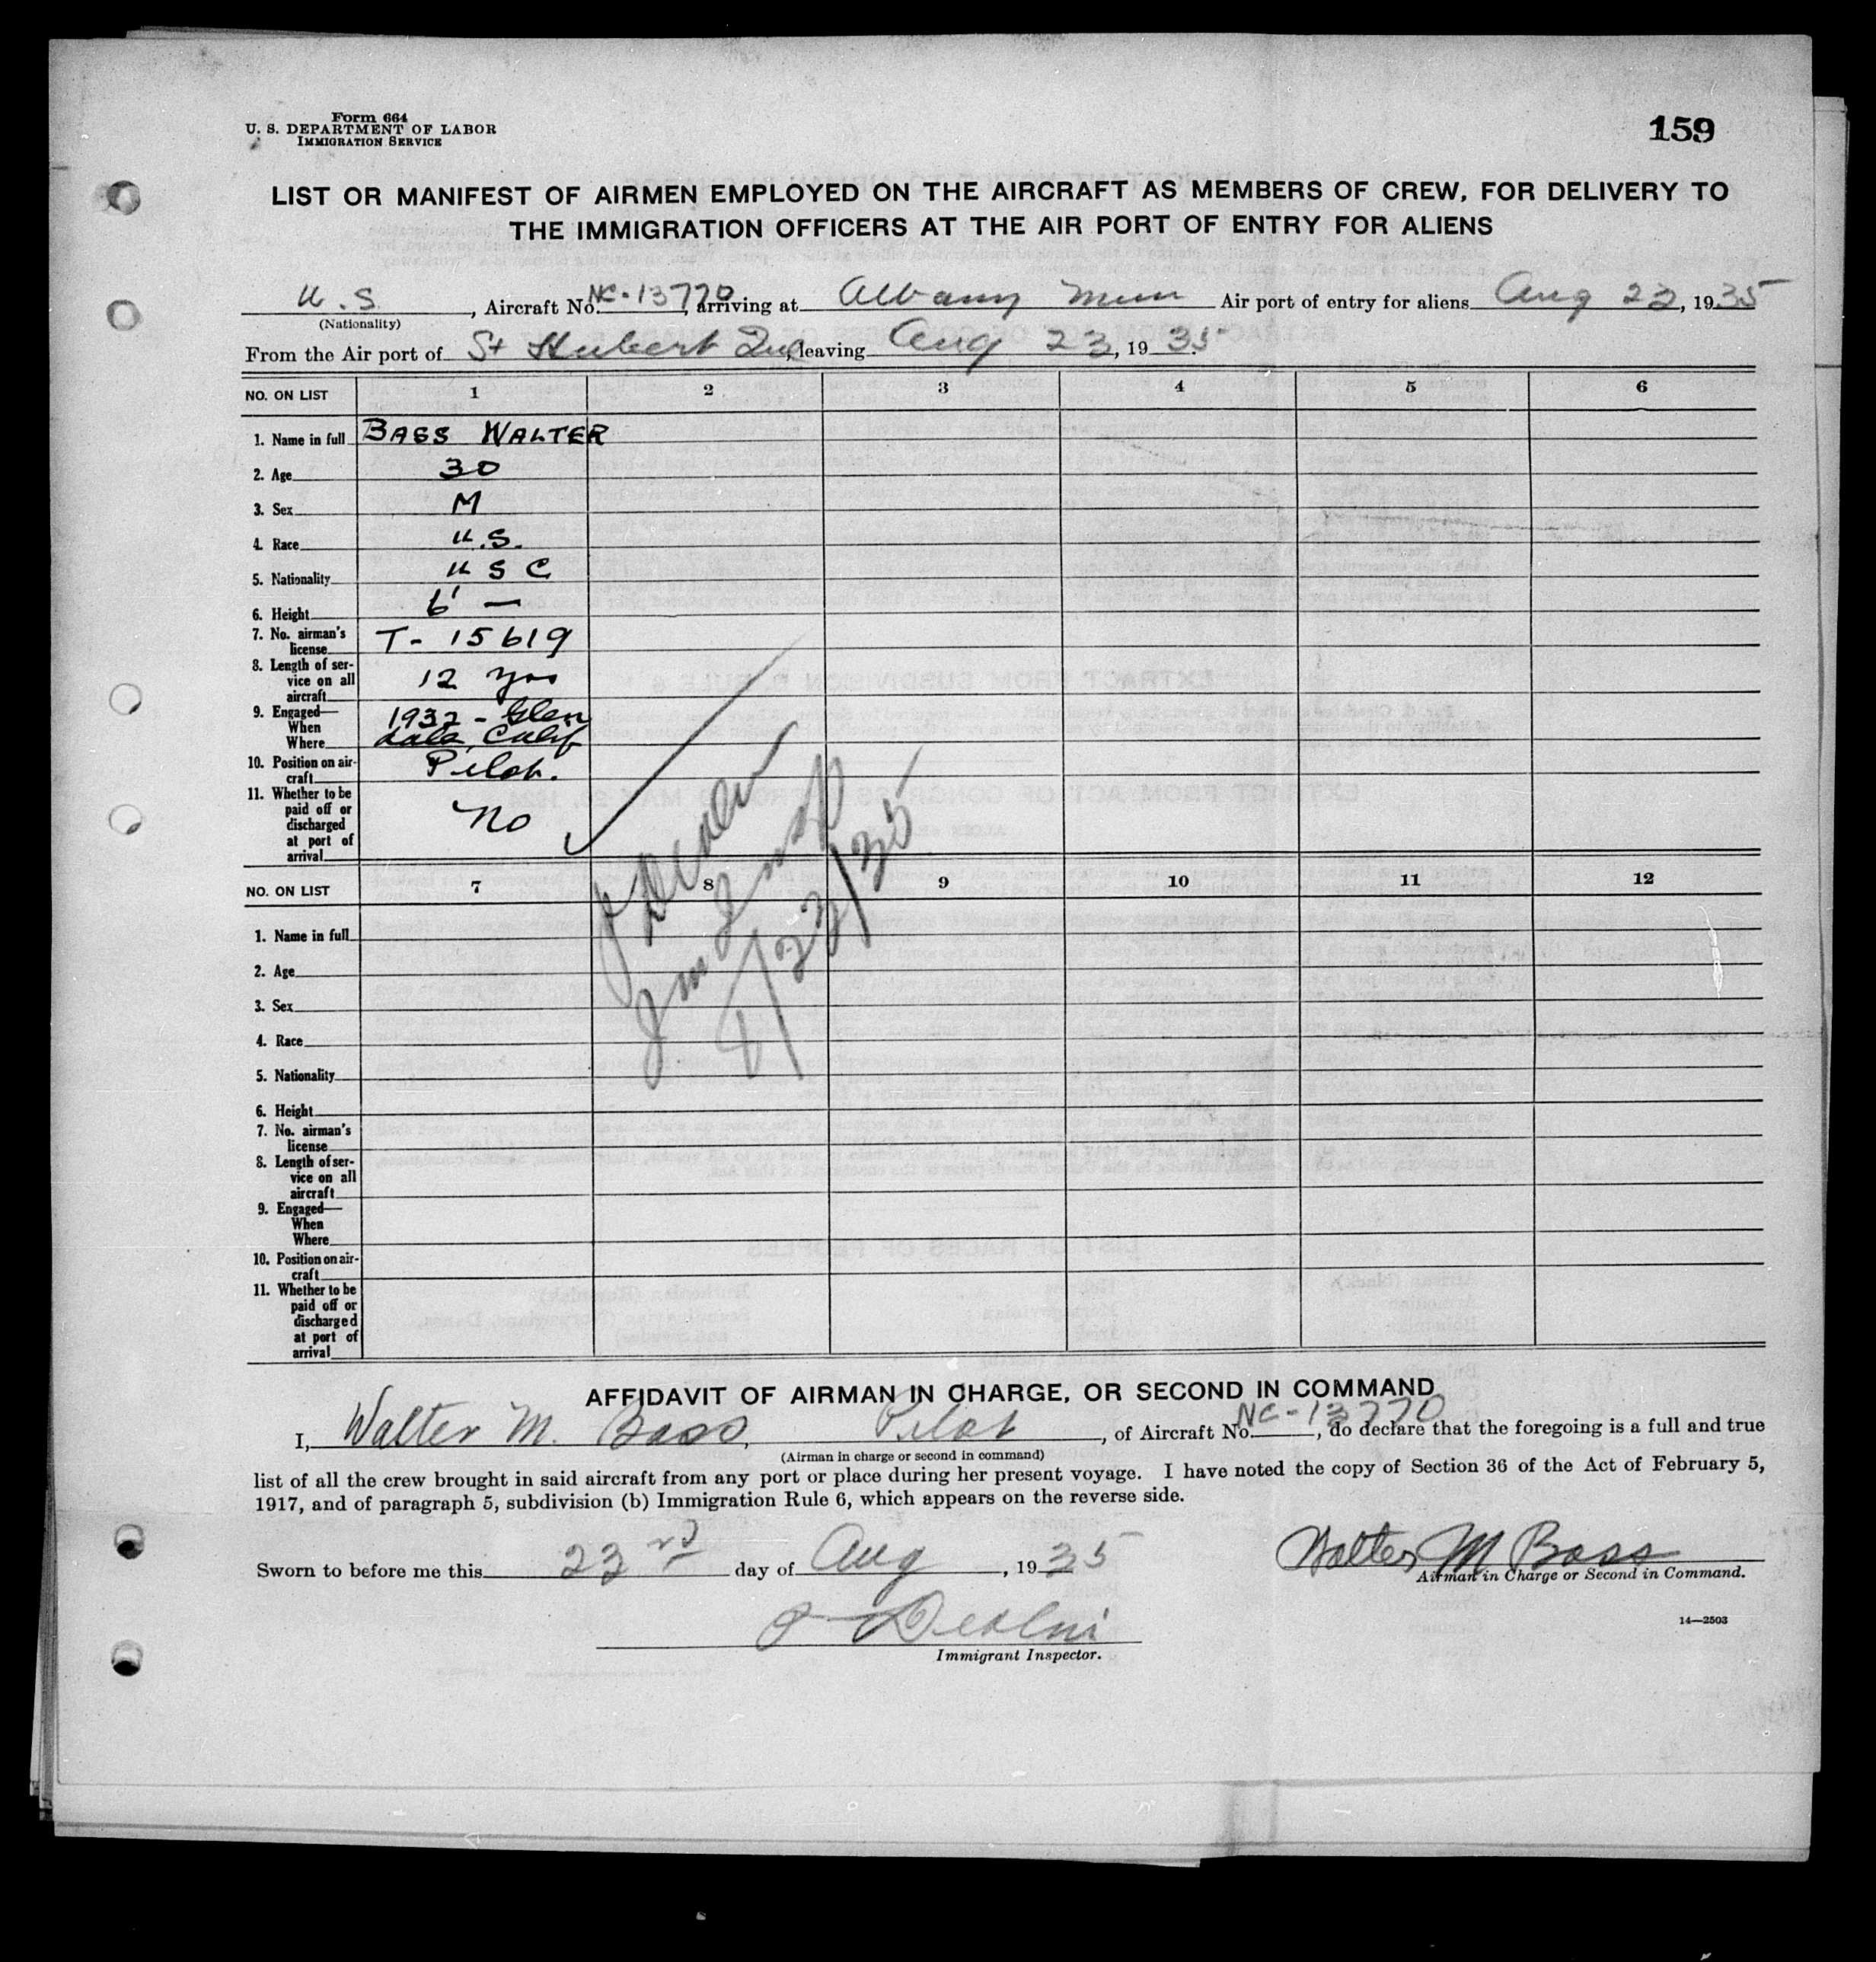 Form 664
U. S. DEPARTMENT OF LABOR
IMMIGRATION SERVICE
159
LIST OR MANIFEST OF AIRMEN EMPLOYED ON THE AIRCRAFT AS MEMBERS OF CREW, FOR DELIVERY TO
THE IMMIGRATION OFFICERS AT THE AIR PORT OF ENTRY FOR ALIENS
U.S., Aircraft No. NC-13770, arriving at Albany Mun Air port of entry for aliens Aug 23, 1935
(Nationality)
From the Air port of St Hubert Que, leaving Aug 23, 1935.
NO. ON LIST 1 2 3 4 5 6
1. Name in full BASS WALTER
2. Age 30
3. Sex M
4. Race U.S.
5. Nationality U S C
6. Height 6' —
7. No. airman's
license T- 15619
8. Length of ser-
vice on all
aircraft 12 yrs
9. Engaged— 1932 - Glen
When
Where dale, Calif
10. Position on air-
craft Pilot.
11. Whether to be
paid off or
discharged
at port of
arrival No
Imm Insp
8/23/35
NO. ON LIST 7 8 9 10 11 12
1. Name in full
2. Age
3. Sex
4. Race
5. Nationality
6. Height
7. No. airman's
license
8. Length of ser-
vice on all
aircraft
9. Engaged—
When
Where
10. Position on air-
craft
11. Whether to be
paid off or
discharged
at port of
arrival
AFFIDAVIT OF AIRMAN IN CHARGE, OR SECOND IN COMMAND
I, Walter M. Bass, Pilot, of Aircraft No. NC-13770, do declare that the foregoing is a full and true
(Airman in charge or second in command)
list of all the crew brought in said aircraft from any port or place during her present voyage. I have noted the copy of Section 36 of the Act of February 5,
1917, and of paragraph 5, subdivision (b) Immigration Rule 6, which appears on the reverse side.
Sworn to before me this 23rd day of Aug, 1935
Walter M Bass
Airman in Charge or Second in Command.
14—2503
Immigrant Inspector.